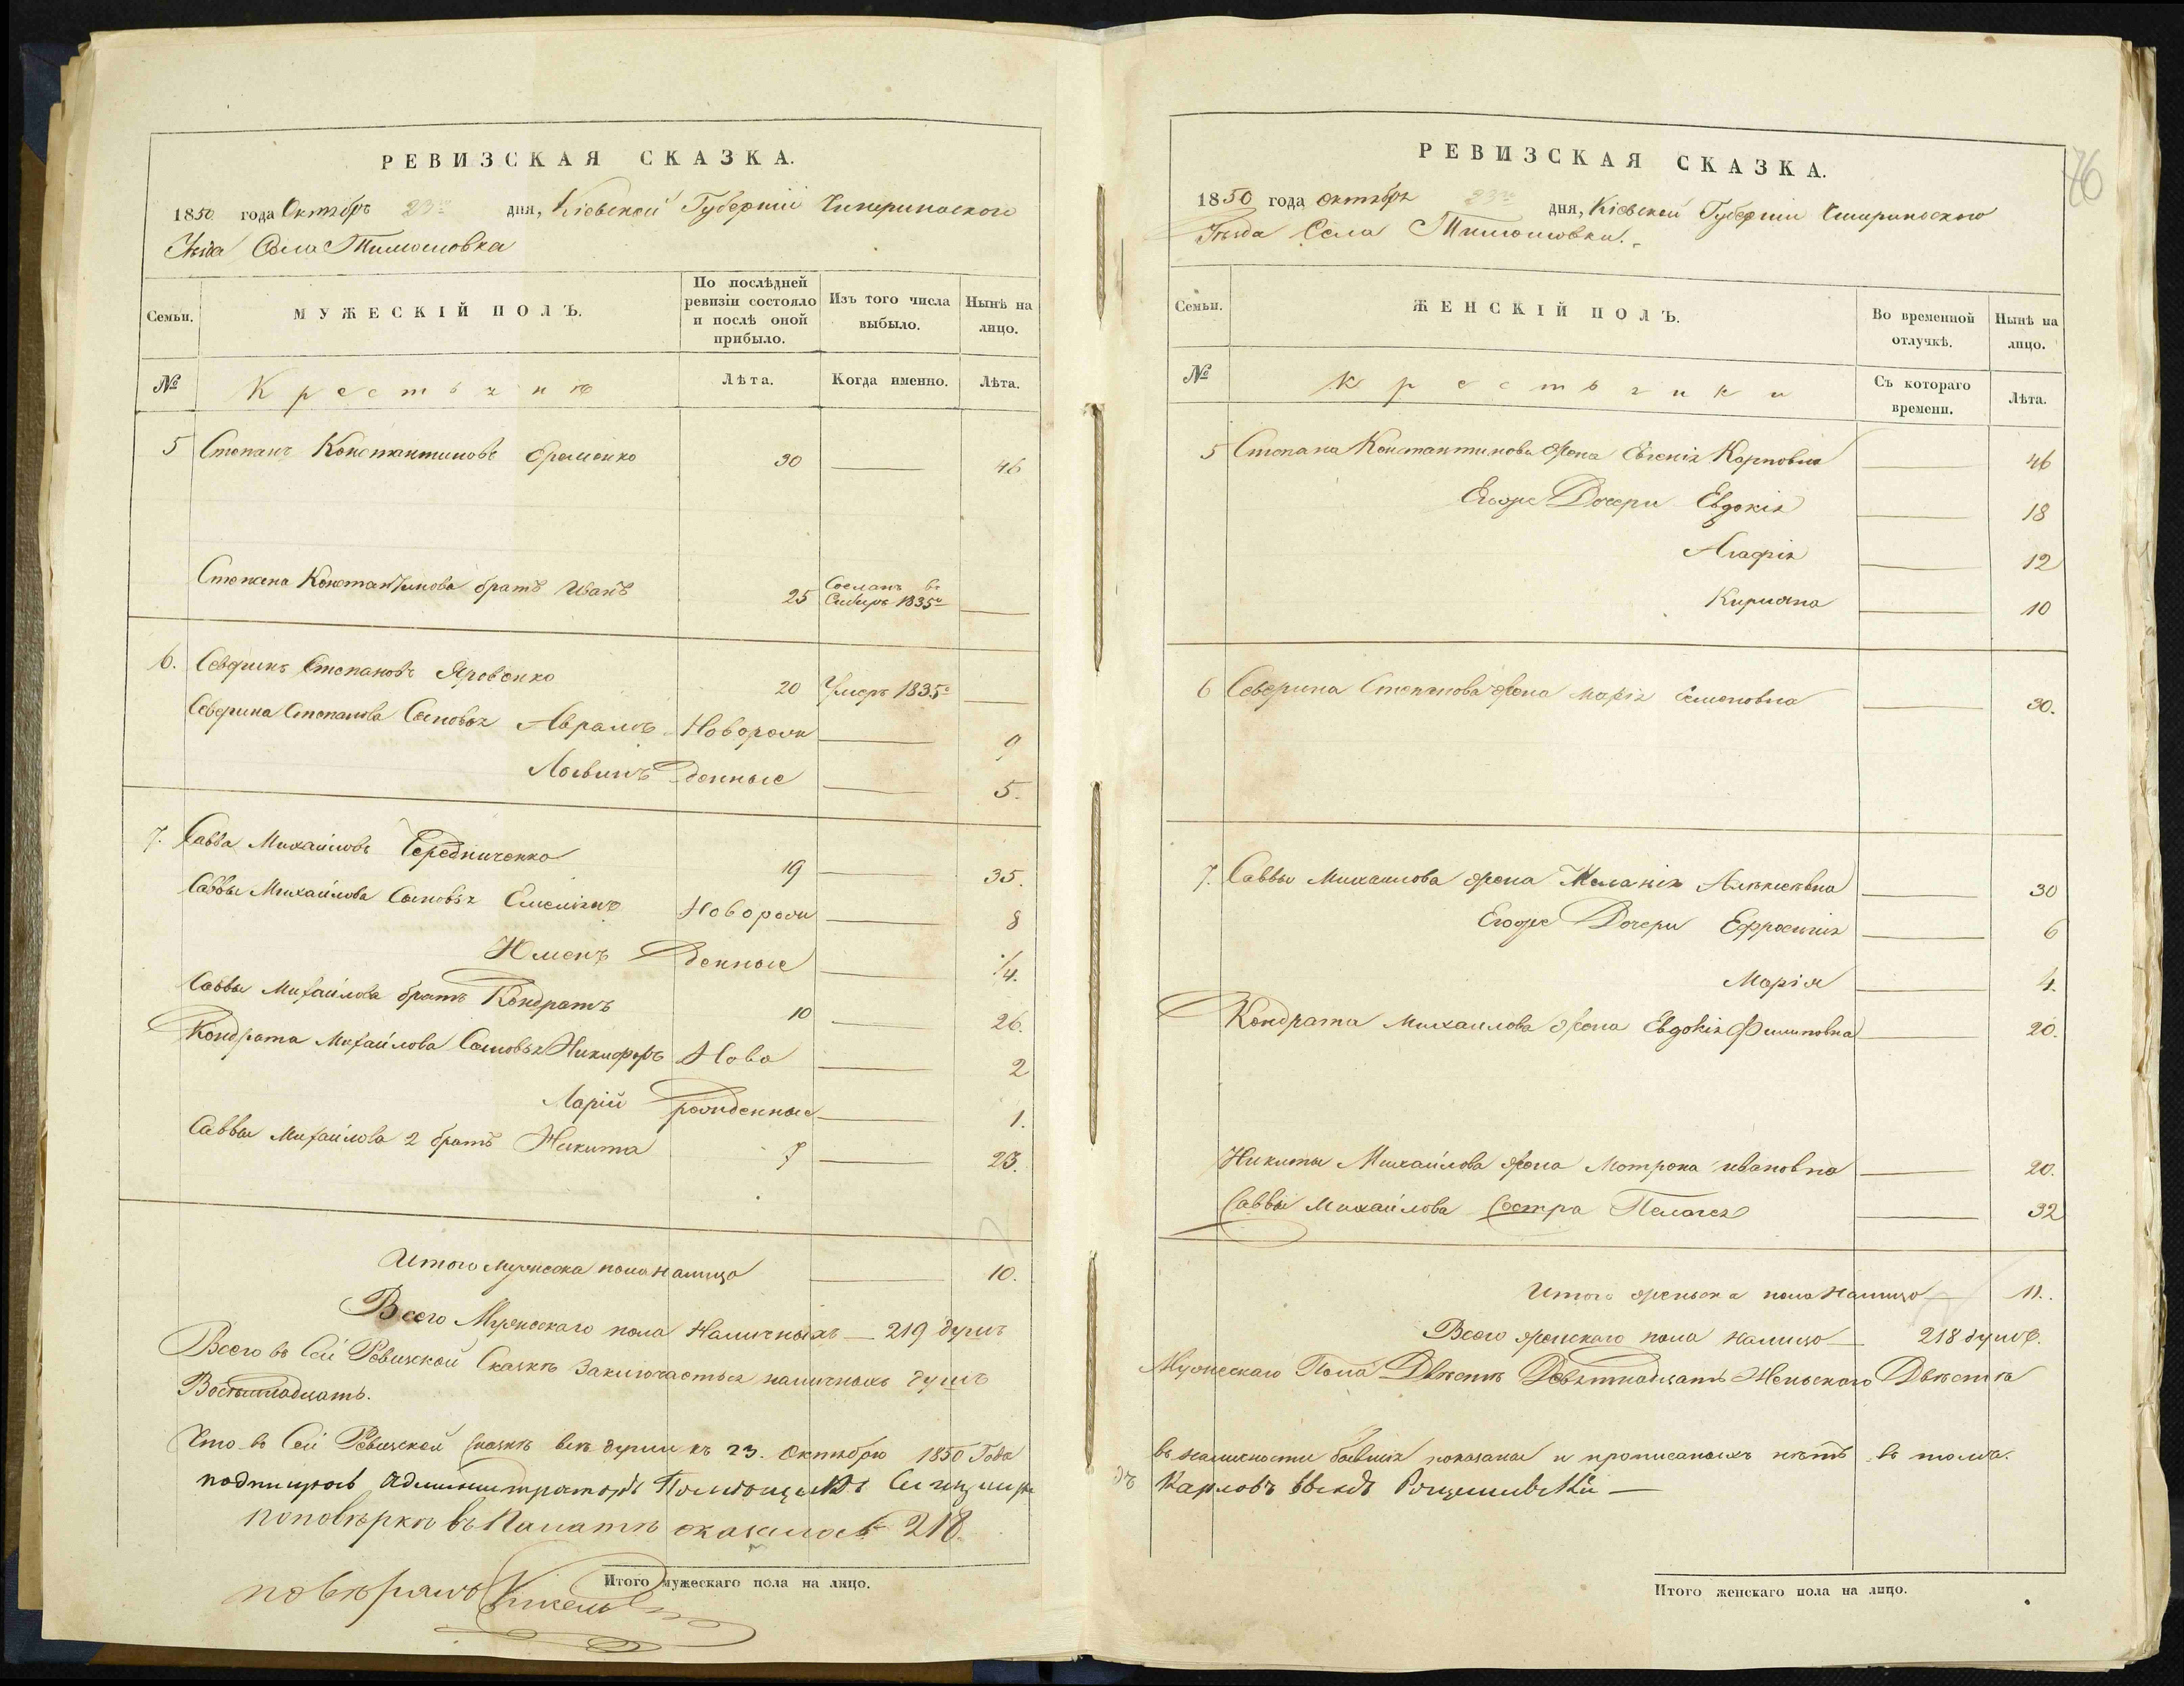 РЕВИЗСКАЯ СКАЗКА.
1850 года Октября 23го дня, Кіевской Губерніи Чигиринскаго
Уѣзда Села Тимошовка
Семьи.
МУЖЕСКІЙ ПОЛЪ.
По послѣдней ревизіи состояло и послѣ оной прибыло.
Изъ того числа выбыло.
Нынѣ на лицо.
№
Крестьяне
Лѣта.
Когда именно.
Лѣта.
5 Степанъ Константиновъ Еременко 30 46
Степана Константинова братъ Иванъ 25 Сосланъ въ Сибирь 1835го
6. Севѣринъ Степановъ Яровенко 20 Умеръ 1835го
Севѣрина Степанова Сыновья Аврамъ Новорож 9
Логвинъ денные 5.
7. Савва Михайловъ Чередниченко 19 35.
Саввы Михайлова Сыновья Емеліянъ Новорож 8
Юменъ денные 1/4.
Саввы Михайлова братъ Кондратъ 10 26.
Кондрата Михайлова Сыновья Никифоръ Ново 2
Марій рожденные 1.
Саввы Михайлова 2 братъ Никита 7 23.
Итого Мужеска пола Налицо 10.
Всего Мужескаго пола Наличныхъ — 219 душъ
Всего въ Сей Ревизской Сказкѣ Заключается наличныхъ душъ
Восѣмнадцать.
Что въ Сей Ревизской Сказкѣ всѣ души къ 23. Октября 1850 Года
подписуюсь Администраторъ
поповѣркѣ въ Палатѣ оказалось 218.
повѣрялъ
Итого мужескаго пола на лицо.
76
РЕВИЗСКАЯ СКАЗКА.
1850 года Октября 23го дня, Кіевской Губерніи Чигиринскаго
Уѣзда Села Тимошовки.
Семьи.
ЖЕНСКІЙ ПОЛЪ.
Во временной отлучкѣ.
Нынѣ на лицо.
№
Крестьянки
Съ котораго времени.
Лѣта.
5 Степана Константинова жена Евгенія Карповна 46
Егоже Дочери Евдокія 18
Агафія 12
Киріяна 10
6 Севѣрина Степанова жена Марія Семеновна 30.
7. Саввы Михаилова жена Меланія Алексѣевна 30
Егоже Дочери Ефросинія 6
Марія 4.
Кондрата Михаилова жена Евдокія Филиповна 20.
Никиты Михайлова жена Мотрона Ивановна 20.
Саввы Михайлова Сестра Пелагея 32
Итого женьска пола Налицо 11.
Всего женскаго пола налицо — 218 душъ.
Мужескаго Пола Двѣстѣ Девятнадцать Женьскаго Двѣста
въ наличности бывшія показаны и прописаныхъ нѣтъ въ томъ.
Карловъ сынъ
Итого женскаго пола на лицо.